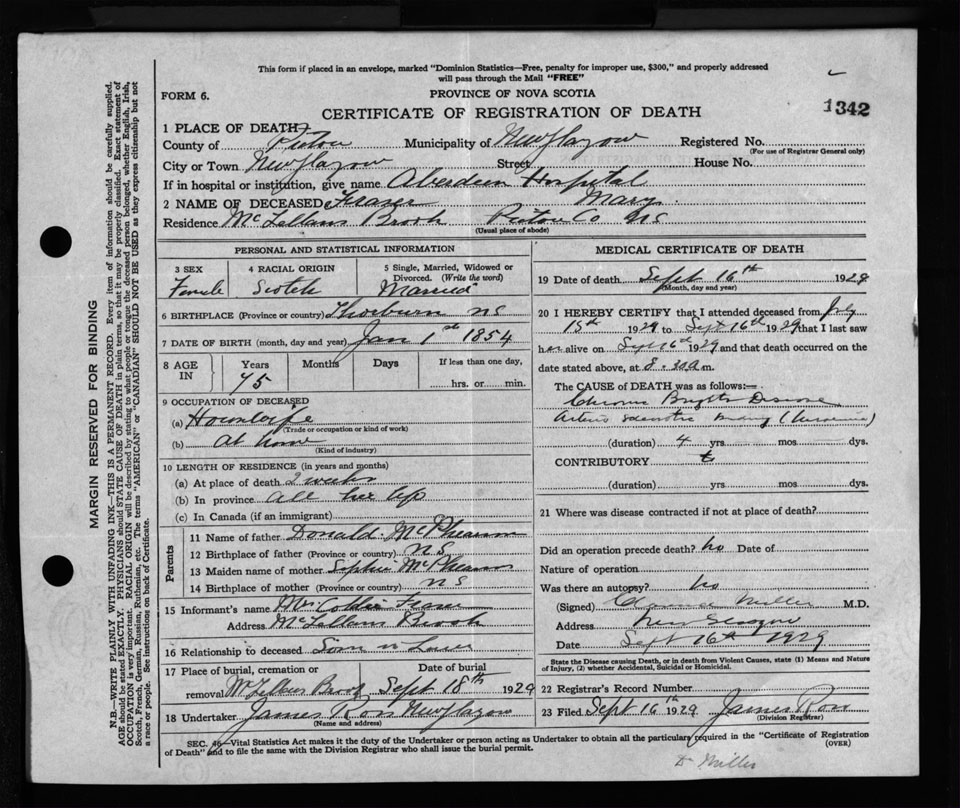 This form if placed in an envelope, marked "Dominion Statistics—Free, penalty for improper use, $300," and properly addressed
will pass through the Mail "FREE"
FORM 6.
PROVINCE OF NOVA SCOTIA
CERTIFICATE OF REGISTRATION OF DEATH
1342
1 PLACE OF DEATH
County of Pictou Municipality of New Glasgow Registered No.
(For use of Registrar General only)
City or Town New Glasgow Street House No.
If in hospital or institution, give name Aberdeen Hospital
2 NAME OF DECEASED Fraser Mary
Residence McLellans Brook Pictou Co NS
(Usual place of abode)
PERSONAL AND STATISTICAL INFORMATION
3 SEX 4 RACIAL ORIGIN 5 Single, Married, Widowed or
Divorced. (Write the word)
Female Scotch Married
6 BIRTHPLACE (Province or country) Thorburn NS
7 DATE OF BIRTH (month, day and year) Jan 1st 1854
8 AGE IN Years Months Days If less than one day,
75 hrs. or min.
9 OCCUPATION OF DECEASED
(a) Housewife
(Trade or occupation or kind of work)
(b) At home
(Kind of industry)
10 LENGTH OF RESIDENCE (in years and months)
(a) At place of death 2 weeks
(b) In province all her life
(c) In Canada (if an immigrant)
Parents
11 Name of father Donald McPhearson
12 Birthplace of father (Province or country) NS
13 Maiden name of mother Sophie McPhearson
14 Birthplace of mother (Province or country) NS
15 Informant's name Fraser
Address McLellans Brook
16 Relationship to deceased Son n Law
17 Place of burial, cremation or Date of burial
removal McLellans Brook Sept 18th 1929
18 Undertaker James Ross New Glasgow
(Name and address)
MEDICAL CERTIFICATE OF DEATH
19 Date of death Sept 16th 1929
(Month, day and year)
20 I HEREBY CERTIFY that I attended deceased from July
15th 1929 to Sept 16th 1929 that I last saw
her alive on Sept 16th 1929 and that death occurred on
date stated above, at 8.30 a m.
The CAUSE of DEATH was as follows:—
Chronic Brights Disease
(duration) 4 yrs. mos. dys.
CONTRIBUTORY
(duration) yrs. mos. dys.
21 Where was disease contracted if not at place of death?
Did an operation precede death? no Date of
Nature of operation
Was there an autopsy? no
(Signed) Clarence Miller M.D.
Address New Glasgow
Date Sept 16th 1929
State the Disease causing Death, or in death from Violent Causes, state (1) Means and Nature
of Injury, (2) whether Accidental, Suicidal or Homicidal.
22 Registrar's Record Number
23 Filed Sept 16th 1929 James Ross
(Division Registrar)
SEC. 46—Vital Statistics Act makes it the duty of the Undertaker or person acting as Undertaker to obtain all the particulars required in the "Certificate of Registration
of Death" and to file the same with the Division Registrar who shall issue the burial permit.
(OVER)
Dr Miller
MARGIN RESERVED FOR BINDING
N.B.—WRITE PLAINLY WITH UNFADING INK—THIS IS A PERMANENT RECORD. Every item of information should be carefully supplied.
AGE should be stated EXACTLY. PHYSICIANS should STATE CAUSE OF DEATH in plain terms, so that it may be properly classified. Exact statement of
OCCUPATION is very important. RACIAL ORIGIN will be described by stating to what people or tongue the deceased person belonged, whether English, Irish,
Scotch, French, German, Russian, Ruthenian, etc. The terms "AMERICAN" or "CANADIAN" SHOULD NOT BE USED as they express citizenship but not
a race or people. See instructions on back of Certificate.